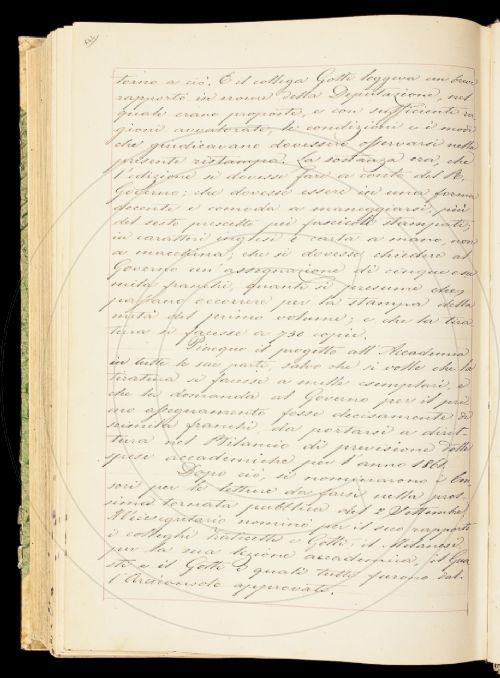 torno a ciò. E il collega Gotti leggeva un breve
rapporto in nome della Deputazione, nel
quale erano proposte, e con sufficiente ra
gioni avvalorate, le condizioni e i modi
che giudicavano dovessero osservarsi nella
presente ristampa. La sostanza era, che
l'edizione si dovesse fare a conto del R.
Governo; che dovesse essere in una forma
decente e comoda a maneggiarsi, più
del sesto prescelto pei fascicoli stampati;
in caratteri inglesi e carta a mano, non
a macchina; che si dovesse chiedere al
Governo un'assegnazione di cinque o sei
mila franchi, quanti si presume che
possano occorrere per la stampa della
metà del primo volume; e che la tira
tura si facesse a 750 copie.
Piacque il progetto all'Accademia
in tutte le sue parti, salvo che si volle che la
tiratura si facesse a mille esemplari, e
che la domanda al Governo per il pri
mo assegnamento fosse decisamente di
seimila franchi, da portarsi a dirit
tura nel Bilancio di previsione delle
spese accademiche per l'anno 1861.
Dopo ciò, si nominarono i Cen
sori per le letture da farsi nella pros
sima tornata pubblica del 2 Settembre.
Il Vicesegretario nominò per il suo rapporto
i colleghi e Gotti; il Milanesi,
per la sua lezione accademica, il Gua
sti e il Gotti: i quali tutti furono dal
l'Arciconsolo approvati.